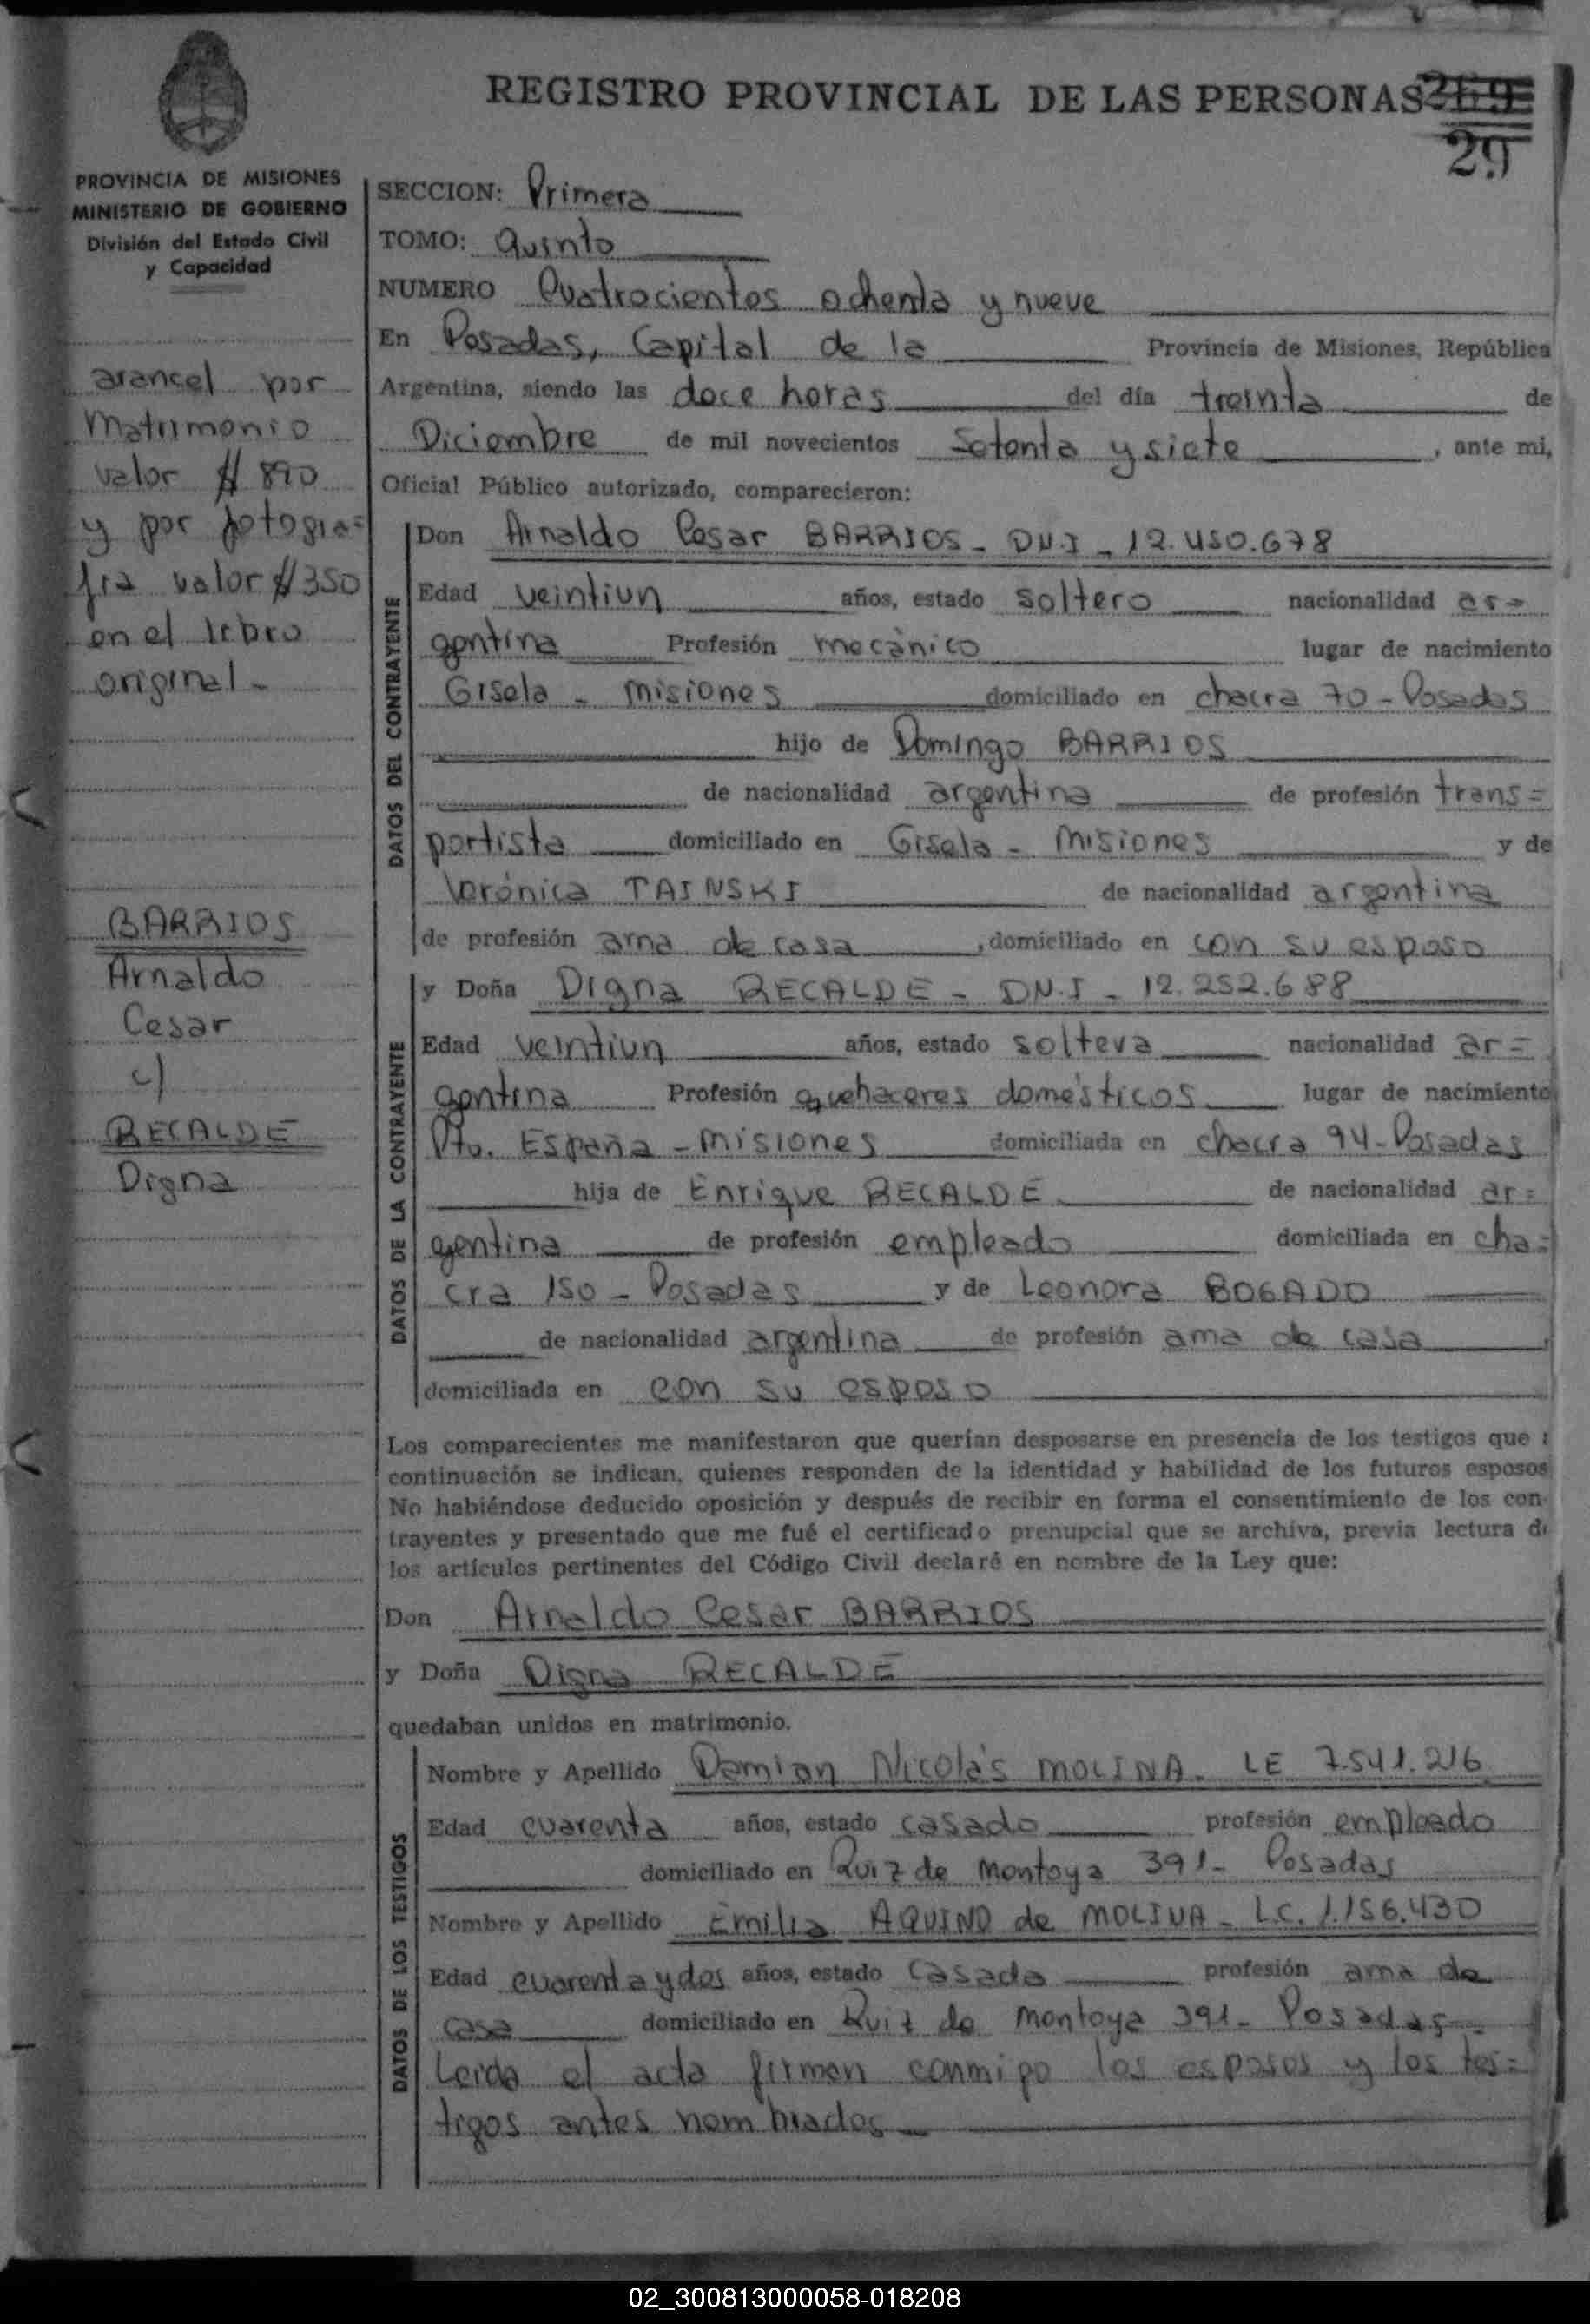 REGISTRO PROVINCIAL DE LAS PERSONAS 269
29
PROVINCIA DE MISIONES
MINISTERIO DE GOBIERNO
División del Estado Civil
y Capacidad
arancel por
Matrimonio
valor $ 890
y por fotogra=
fia valor $ 350
en el libro
original -
BARRIOS
Arnaldo
Cesar
c/
RECALDE
Digna
SECCION: Primera
TOMO: Quinto
NUMERO Cuatrocientos ochenta y nueve
En Posadas, Capital de la Provincia de Misiones, República
Argentina, siendo las doce horas del día treinta de
Diciembre de mil novecientos Setenta y siete, ante mi,
Oficial Público autorizado, comparecieron:
DATOS DEL CONTRAYENTE
Don Arnaldo Cesar BARRIOS - DN.I - 12.450.678
Edad veintiun años, estado soltero nacionalidad ar=
gentina Profesión mecànico lugar de nacimiento
Gisela - Misiones domiciliado en chacra 70 - Posadas
hijo de Domingo BARRIOS
de nacionalidad argentina de profesión trans=
portista domiciliado en Gisela - Misiones y de
Verónica TAINSKI de nacionalidad argentina
de profesión ama de casa, domiciliado en con su esposo
DATOS DE LA CONTRAYENTE
y Doña Digna RECALDE - DN.I - 12.252.688
Edad veintiun años, estado soltera nacionalidad ar=
gentina Profesión quehaceres domésticos lugar de nacimiento
Pto. España - Misiones domiciliada en chacra 94 - Posadas
hija de Enrique RECALDE de nacionalidad ar=
gentina de profesión empleado domiciliada en cha=
cra 150 - Posadas y de Leonora BOGADO
de nacionalidad argentina de profesión ama de casa,
domiciliada en con su esposo
Los comparecientes me manifestaron que querían desposarse en presencia de los testigos que a
continuación se indican, quienes responden de la identidad y habilidad de los futuros esposos
No habiéndose deducido oposición y después de recibir en forma el consentimiento de los con-
trayentes y presentado que me fué el certificado prenupcial que se archiva, previa lectura de
los artículos pertinentes del Código Civil declaré en nombre de la Ley que:
Don Arnaldo Cesar BARRIOS
y Doña Digna RECALDE
quedaban unidos en matrimonio.
DATOS DE LOS TESTIGOS
Nombre y Apellido Damian Nicolás MOLINA - LE 7.541.216
Edad cuarenta años, estado casado profesión empleado
domiciliado en Ruiz de Montoya 391 - Posadas
Nombre y Apellido Emilia AQUINO de MOLINA - L.C. 1.156.430
Edad cuarenta y dos años, estado casada profesión ama de
casa domiciliado en Ruiz de Montoya 391 - Posadas -
Leida el acta firman conmigo los esposos y los tes=
tigos antes nombrados -
02_300813000058-018208